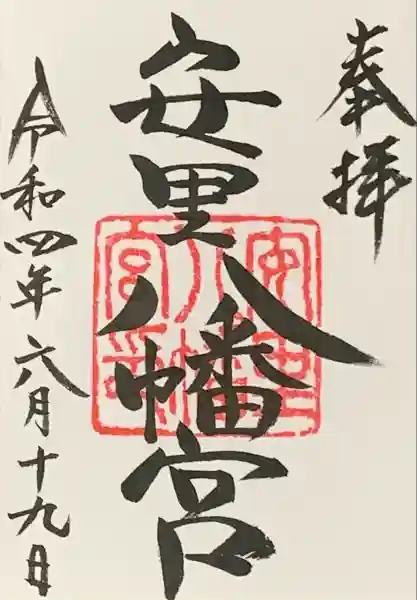 奉拝
安里八幡宮
安里八幡宮印
令和四年六月十九日